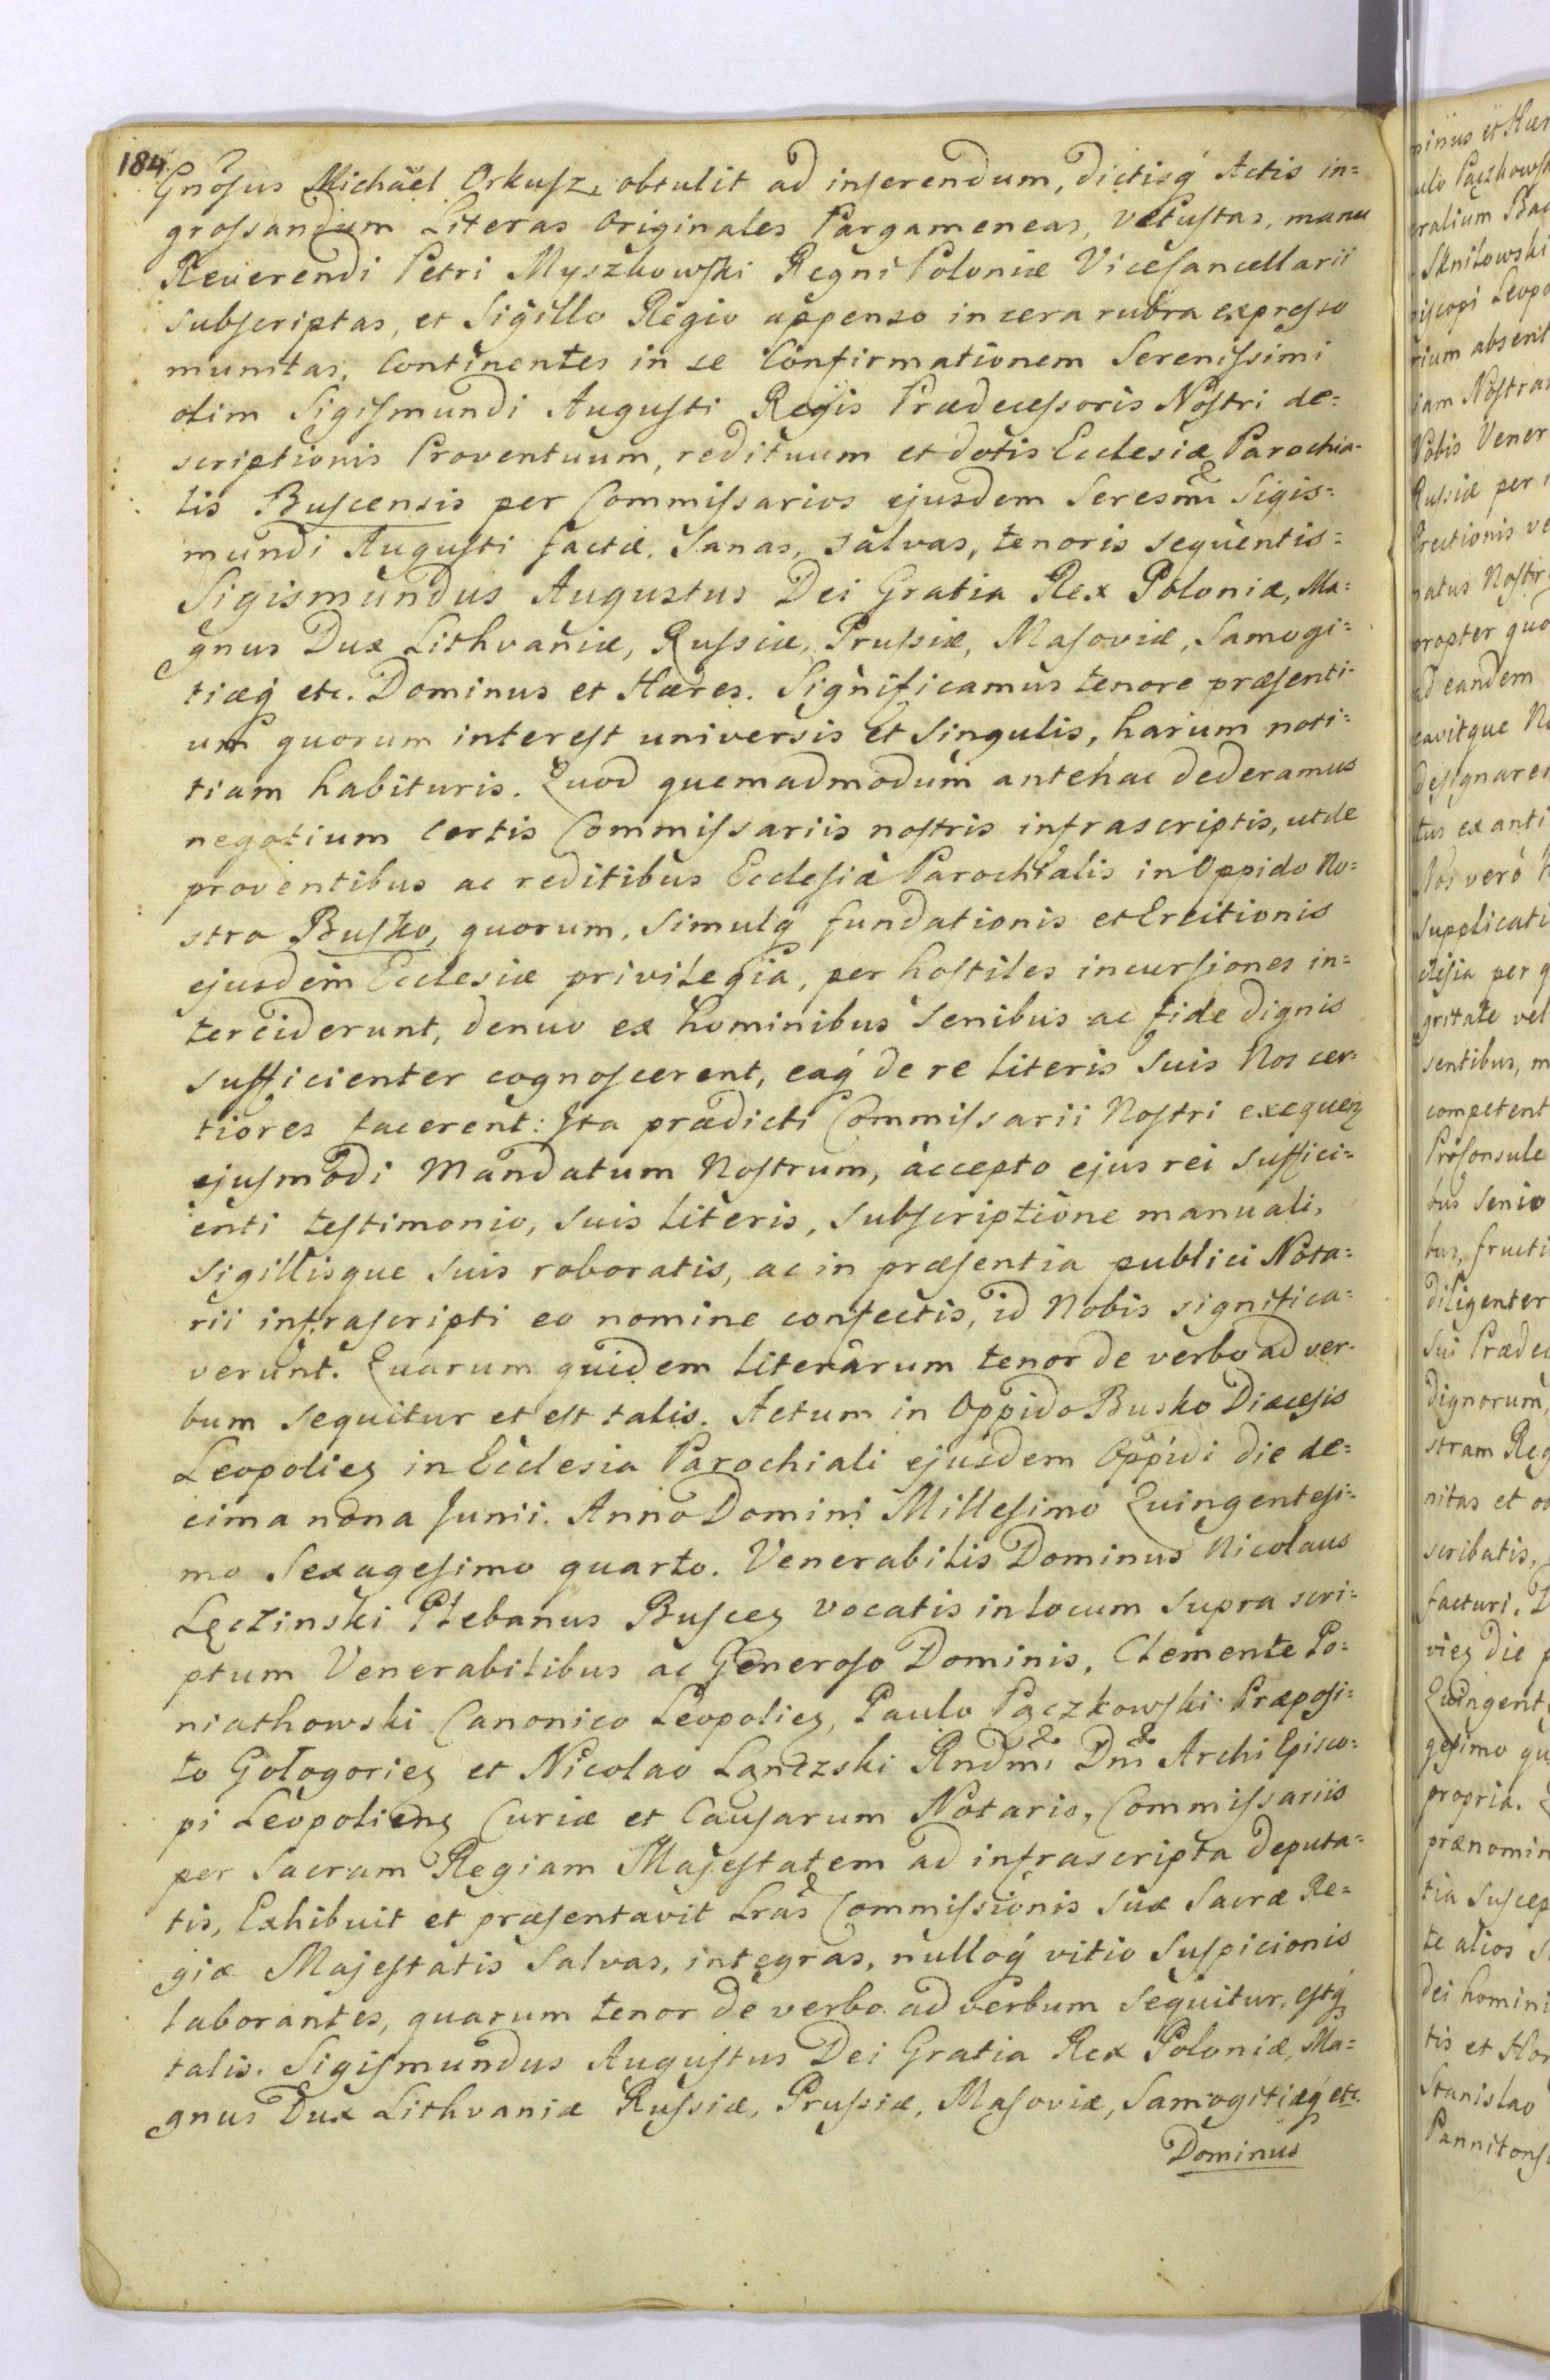 184
Gnosus Michael Orkusz, obtulit ad inserendum, dictisq́ Actis in=
grossandum Literas Originales Pargameneas, vetustas, manu
Reverendi Petri Myszkowski Regni Poloniæ ViceCancellarii
subscriptas, et Sigillo Regio appenso in cera rubra expresso
munitas, Continentes in se Confirmationem Serenissimi
olim Sigismundi Augusti Regis Prædecessoris Nostri de=
scriptionis Proventuum, redituum et dotis Ecclesiæ Parochia-
lis Buscensis per Commissarios ejusdem Seresmi Sigis=
mundi Augusti factæ. Sanas, salvas, tenoris sequentis=
Sigismundus Augustus Dei Gratia Rex Poloniæ, Ma=
gnus Dux Lithvaniæ, Russiæ, Prussiæ, Masoviæ, Samogi=
tiæq́ etc. Dominus et Hæres. Significamus tenore præsenti-
um quorum interest universis et singulis, harum noti=
tiam habituris. Quod quemadmodum antehac dederamus
negotium Certis Commissariis nostris infrascriptis, ut de
proventibus ac reditibus Ecclesiæ Parochialis in Oppido No=
stro Busko, quorum, simulq́ fundationis et Erectionis
ejusdem Ecclesiæ privilegia, per hostiles incursiones in=
terciderunt, denuo ex hominibus Senibus ac fide dignis
sufficienter cognoscerent, eaq́ de re literis suis Nos cer-
tiores facerent: Ita prædicti Commissarii Nostri exequen
ejusmodi Mandatum Nostrum, accepto ejus rei suffici=
enti testimonio, suis literis, subscriptione manuali,
sigillisque suis roboratis, ac in præsentia publici Nota=
rii infrascripti eo nomine confectis, id Nobis significa=
verunt. Quarum quidem literarum tenor de verbo ad ver-
bum sequitur et est talis. Actum in Oppido Busko Diæcesis
Leopolien in Ecclesia Parochiali ejusdem Oppidi die de=
cima nona Junii. Anno Domini Millesimo Quingentesi=
mo Sexagesimo quarto. Venerabilis Dominus Nicolaus
Lęczinski Plebanus Buscen vocatis in locum supra scri=
ptum Venerabilibus ac Generoso Dominis, Clemente Po=
niathowski Canonico Leopolien, Paulo Pączkowski Præposi=
to Gologorien et Nicolao Lanczski Rndmi Dni ArchiEpisco=
pi Leopoliens Curiæ et Causarum Notario, Commissariis
per Sacram Regiam Majestatem ad infrascripta deputa=
tis, Exhibuit et præsentavit Lras Commissionis suæ Sacræ Re=
giæ Majestatis salvas, integras, nulloq́ vitio suspicionis
laborantes, quarum tenor de verbo ad verbum sequitur, estq́
talis. Sigismundus Augustus Dei Gratia Rex Poloniæ, Ma=
gnus Dux Lithvaniæ Russiæ, Prussiæ, Masoviæ, Samogitiæq́ etc.
Dominus